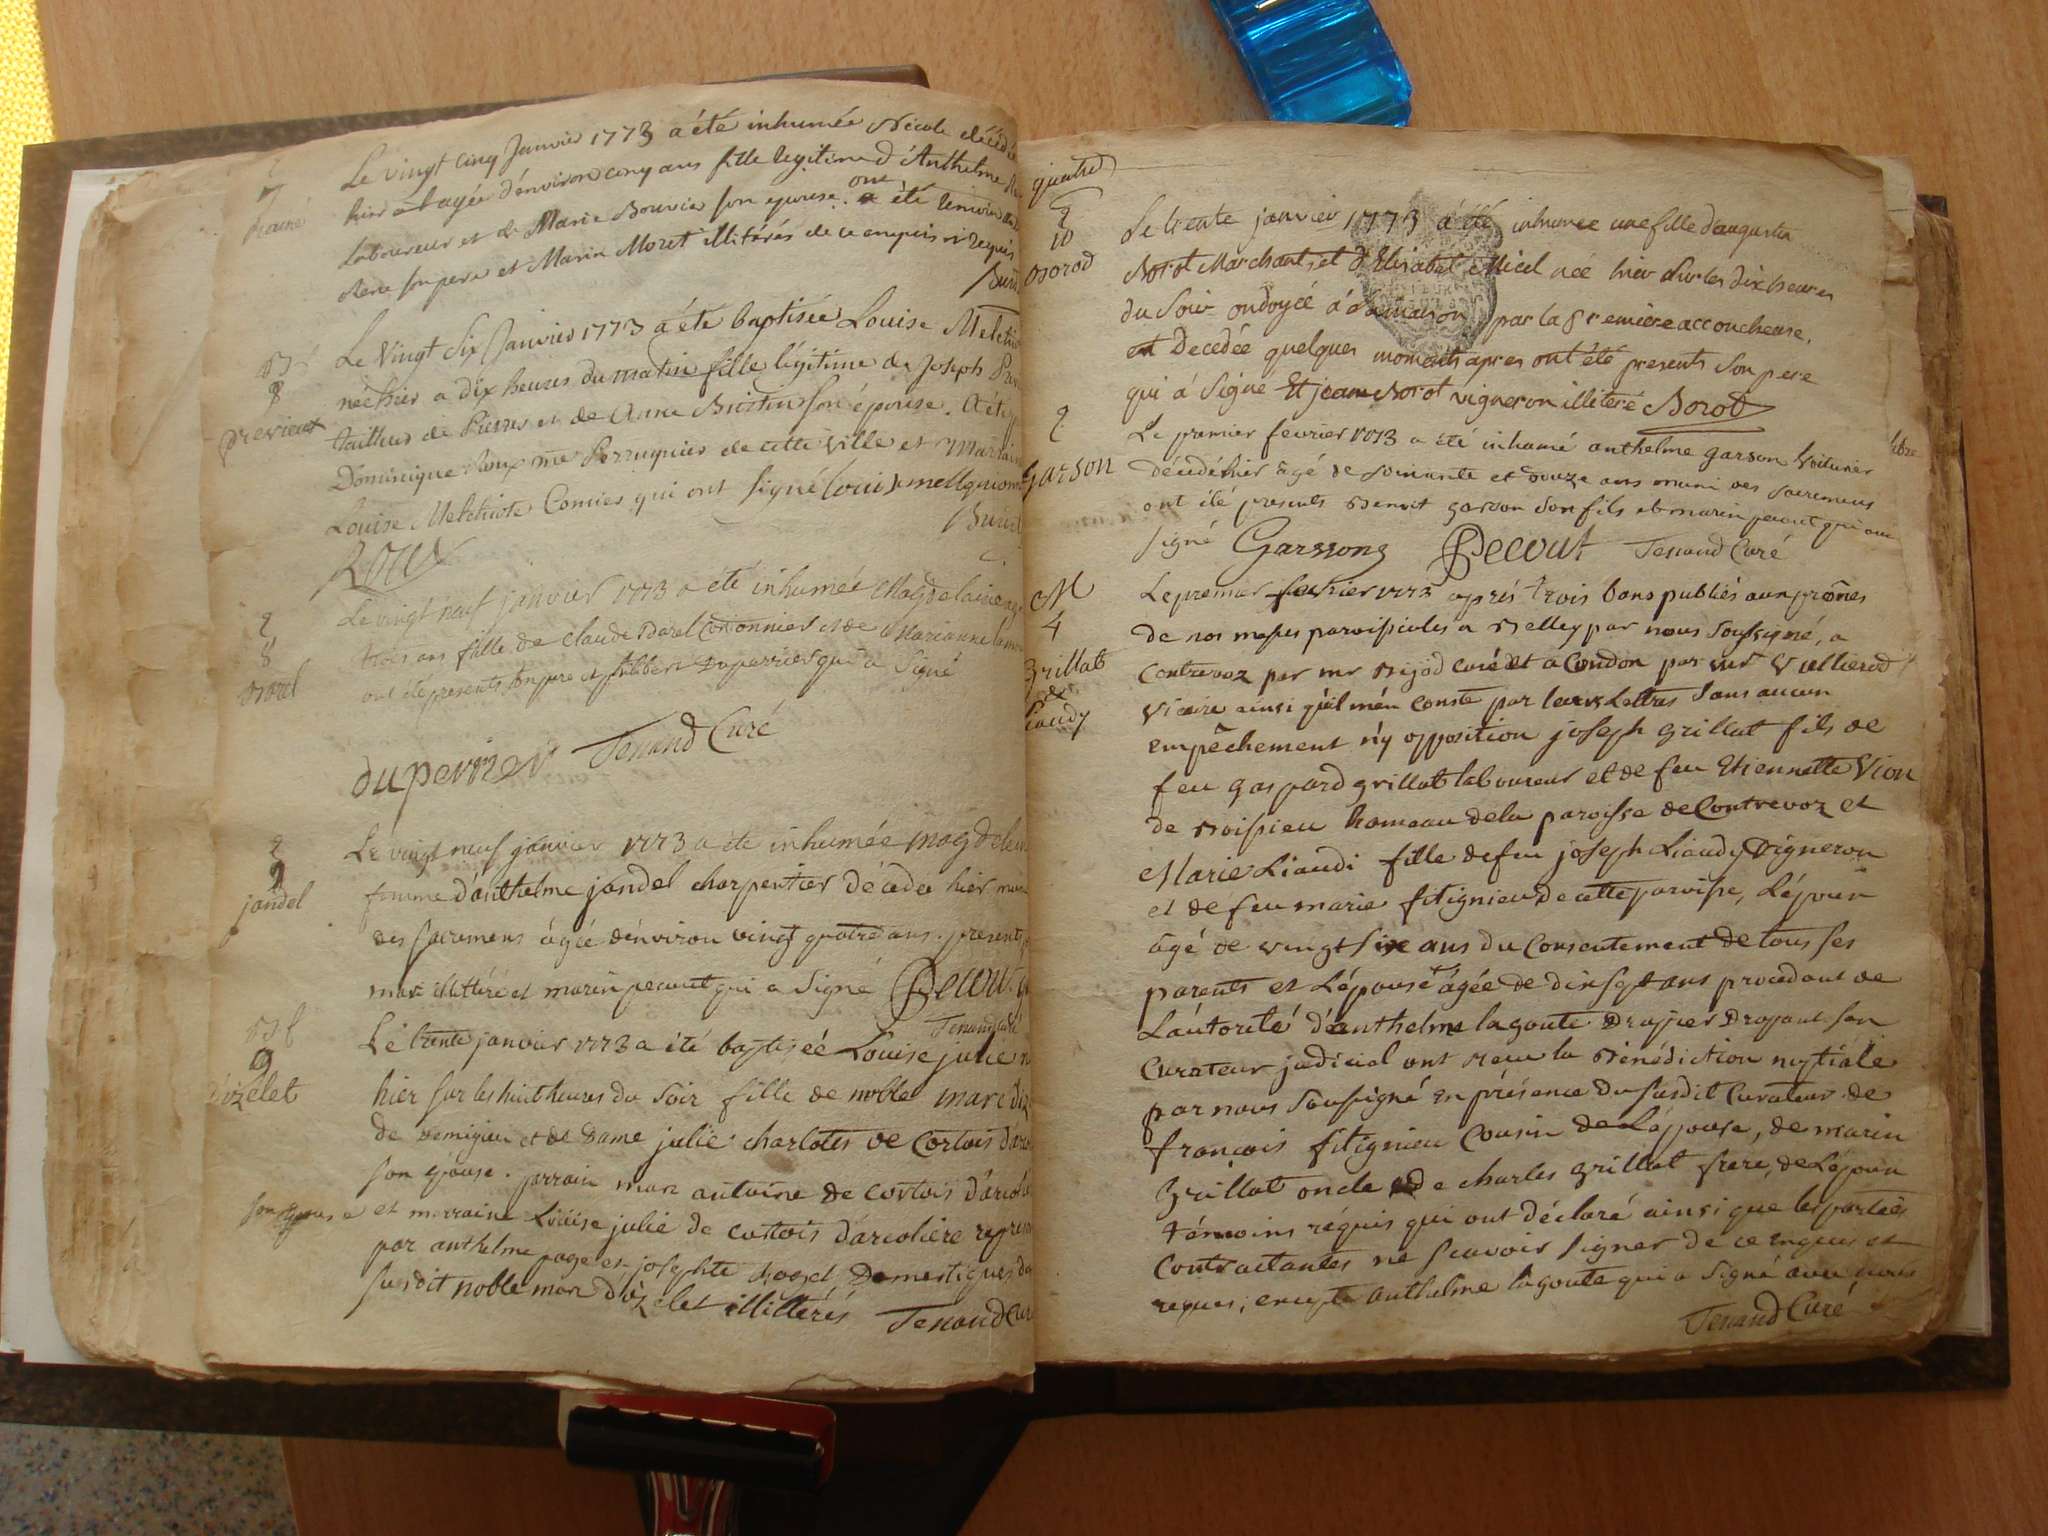 Le vingt cinq Janvier 1773 a été inhumée Nicole décédée
hier âgée d'environ cinq ans fille legitime d'Anthelme
Laboureur et de Marie Bouvier son epouse. ont été
René son pere et Marin Moret illitérés de ce enquis et requis
B
8
previeux
Le Vingt Six Janvier 1773 a été baptisée Louise Melchio
née hier a dix heures du matin fille légitime de Joseph
tailleur de Pierres et de Anne Bustin son épouse. A été
Dominique Roux me Perruquier de cette ville et Marraine
Louise Melchiote Comier qui ont signé Louise mellquiom
Roux
8
Borel
Le vingt neuf janvier 1773 a été inhumée Magdelaine
trois ans fille de claude Borel Cordonnier et de Marianne
ont été presents son pere et philibert Duperrier qui a Signé
duperrier Tenand Curé
9
jandel
Le vingt neuf janvier 1773 a été inhumée magdelei
femme d'anthelme jandel charpentier décédée hier muni
des sacremens âgée d'environ vingt quatre ans. presents
mari illitéré et marin pecout qui a Signé Pecout
Tenand curé
9
dizelet
Le trente janvier 1773 a été baptiseé Louise julie n
hier sur les huit heures du Soir fille de noble marc diz
de remigieu et de Dame julie charlotes de Cortois d'arco
son epouse. parrain marc antoine de cortois d'arcol
son epouse et marraine Louise julie de cortois d'arcoliere repres
par anthelme page et josephte Domestiques du
susdit noble marc dizelet illitterés Tenand Cur
quatre
10
Borod
Le trente janvier 1773 a été inhumée une fille d'augustin
Borot Marchant, et d'Elisabet Micel née hier sur les dix heures
du Soir ondoyée à la maison par la premiere accoucheuse,
et Decedée quelques moments apres ont été presents Son pere
qui á Signé Et jean Borot vigneron illiteré Borot
garson
Le premier fevrier 1773 a été inhumé anthelme garson voiturier
décédé hier âgé de soixante et douze ans muni des sacremens
ont été presents Benoit garson son fils et marin pecout qui ont
signé Garssong Pecout Tenand Curé
M
4
Grillat
et
Liaudy
Le premier fevrier 1773 après trois bans publiés aux prônes
de nos messes paroissiales a Belley par nous soussigné, a
Contrevoz par mr Bijod curé et a Condon par mr Vullierod
Vicaire ainsi qu'il m'en conste par leurs Lettres sans aucun
empêchement n'y opposition joseph grillat fils de
feu gaspard grillat laboureur et de feu Etiennette Vion
de Boissieu hameau de la paroisse de Contrevoz et
Marie Liaudi fille de feu joseph Liaudy Vigneron
et de feu marie fitignieu de cette paroisse, L'époux
âgé de vingt six ans du consentement de tous ses
parents et L'épouse âgée de dix sept ans procedant de
L'autorité d'anthelme lagoute Drapier Drapant son
Curateur judicial ont reçu la Bénédiction nuptiale
par nous soussigné en présence du susdit Curateur de
françois fitignieu Cousin de L'épouse, de marin
Grillat oncle et de charles grillat frere de L'époux
témoins réquis qui ont déclaré ainsi que les parties
Contractantes ne sçavoir signer de ce enquis et
requis, excepté anthelme lagoute qui a signé avec nous
Tenand Curé